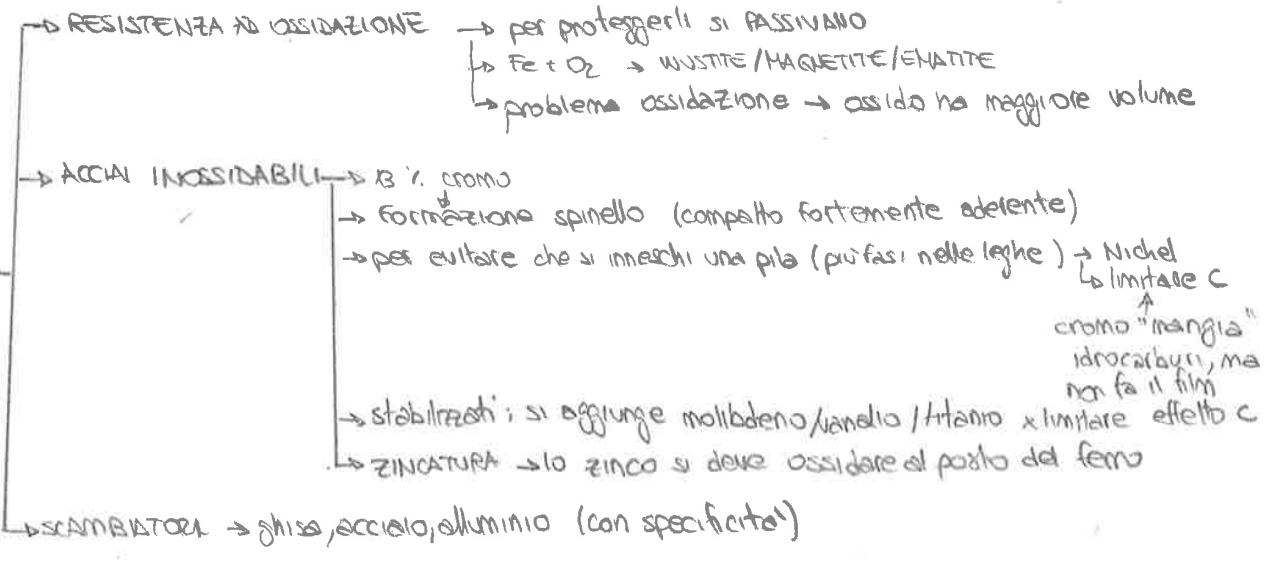 → RESISTENZA AD OSSIDAZIONE → per proteggerli si PASSIVANO
→ Fe + O2 → WUSTITE/MAGNETITE/EMATITE
→ problema ossidazione → ossido ha maggiore volume
→ ACCIAI INOSSIDABILI → 13 % cromo
→ Formazione spinello (compatto fortemente aderente)
→ per evitare che si inneschi una pila (più fasi nelle leghe) → Nichel
↳ limitare C
cromo "mangia"
idrocarburi, ma
non fa il film
→ stabilizzati: si aggiunge molibdeno/vanadio/titanio x limitare effetto C
→ ZINCATURA → lo zinco si deve ossidare al posto del ferro
→ SCAMBIATORI → ghisa, acciaio, alluminio (con specificità)